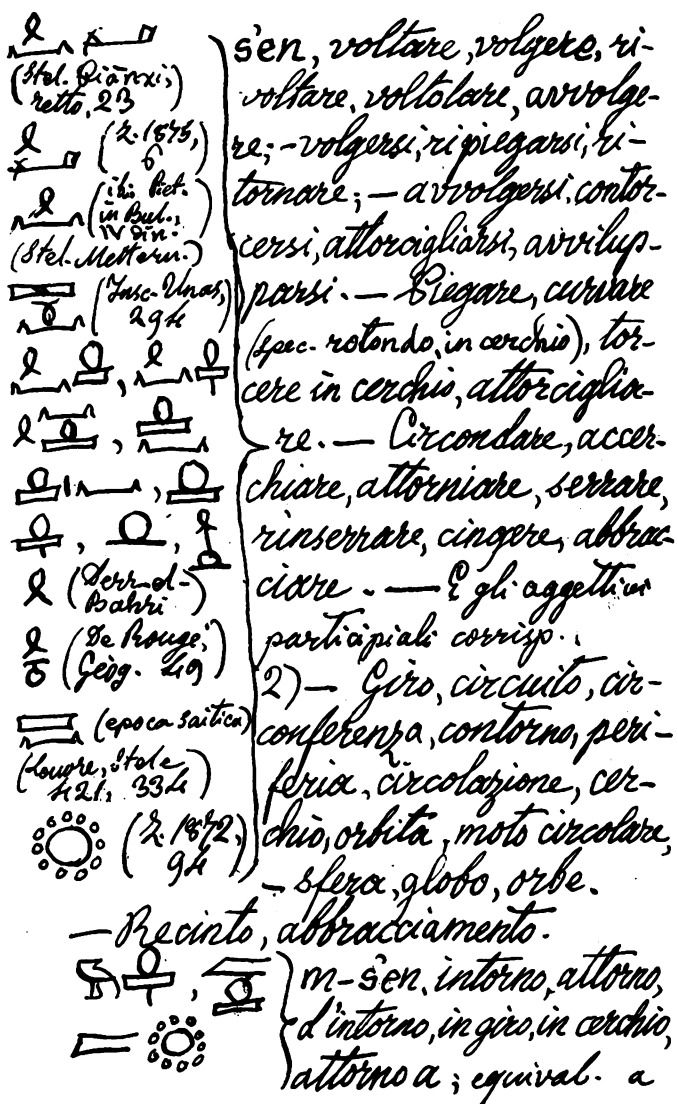 (Stel. Pianxi,
retto, 23)
(Z. 1875,
6)
(ibi. Piet.
in Bul.,
IV Din.
(Stel. Mettern.)
(Insc. Unas,
294)
(Derr-el-
Bahri)
(De Rougé,
Géog. 49)
(epoca saitica)
(Louvre, stele
421, 334)
(Z. 1872,
94)
šen, voltare, volgere, ri-
voltare, voltolare, avvolge-
re; - volgersi, ripiegarsi, ri-
tornare; — avvolgersi, contor-
cersi, attorcigliarsi, avvilup-
parsi. — Piegare, curvare
(spec. rotondo, in cerchio), tor-
cere in cerchio, attorciglia-
re. — Circondare, accer-
chiare, attorniare, serrare,
rinserrare, cingere, abbrac-
ciare. — E gli aggettivi
participiali corrisp..
2) — Giro, circuito, cir-
conferenza, contorno, peri-
feria, circolazione, cer-
chio, orbita, moto circolare,
- sfera, globo, orbe.
— Recinto, abbracciamento.
m-šen, intorno, attorno,
d'intorno, in giro, in cerchio,
attorno a; equival. a